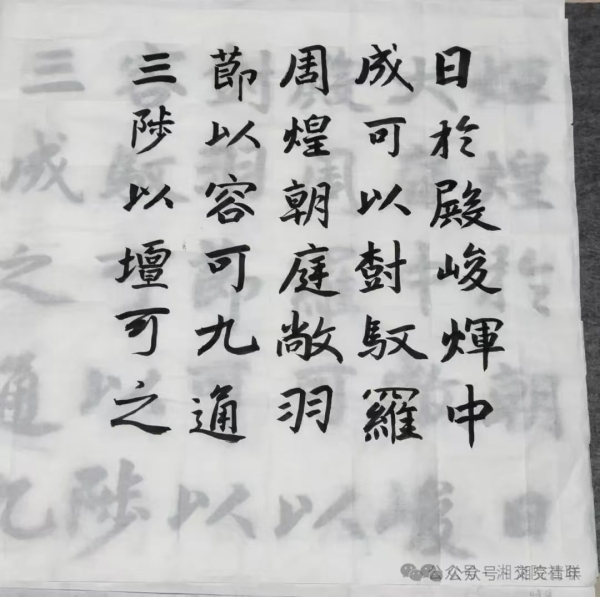 日於殿峻煇中
成可以馭羅
周煌朝庭敞羽
節以容可九通
三陟以壇可之
公众号